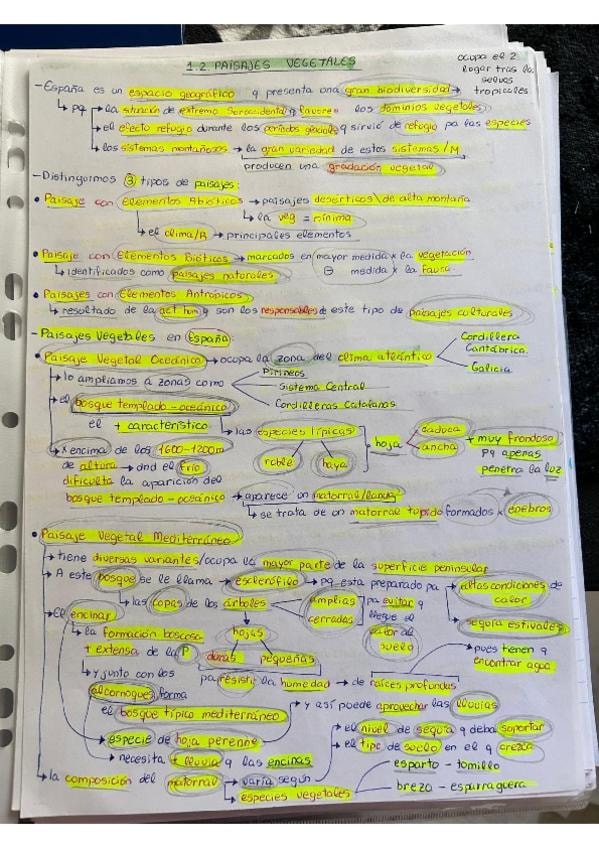 1.2 PAISAJES VEGETALES
ocupa el 2
lugar tras la
selvas
tropicales
-España es un espacio geográfico q presenta una gran biodiversidad →
↳ pq → la situación de extremo Suroccidental q favore los dominios vegetales
→ el efecto refugio durante los periodos glaciales q sirvió de refugio pa las especies
↳ los sistemas montañosos → la gran variedad de estos sistemas/M
producen una gradación vegetal
-Distinguimos 3 tipos de paisajes:
• Paisaje con Elementos Abióticos → paisajes desérticos\de alta montaña
↳ la veg = mínima
↳ el clima/R → principales elementos
• Paisaje con Elementos Bióticos → marcados en mayor medida x la vegetación
↳ identificados como paisajes naturales ⊖ medida x la fauna.
• Paisajes con Elementos Antrópicos
↳ resultado de la act hum y son los responsables de este tipo de paisajes culturales
-Paisajes Vegetales en España:
• Paisaje Vegetal Oceánico → ocupa la zona del clima atlántico
Cordillera
Cantábrica.
Galicia
→ lo ampliamos a zonas como
Pirineos
Sistema Central
Cordilleras Catalanas
→ el bosque templado-oceánico
el + característico
→ las especies típicas
roble haya
hoja
caduca
ancha
+ muy frondoso
pq apenas
penetra la luz
↳ x encima de los 1600-1200m
de altura → dnd el frío
dificulta la aparición del
bosque templado-oceánico → aparece un matorral/landa
↳ se trata de un matorral tupido formados x enebros
• Paisaje Vegetal Mediterráneo
→ tiene diversas variantes/ocupa la mayor parte de la superficie peninsular
→ A este bosque se le llama → esclerófilo → pq esta preparado pa
altas condiciones de
calor
sequía estivales
↳ las copas de los árboles
amplias
cerradas
pa evitar q
llegue el
calor al
suelo
→ El encinar
↳ la formación boscosa
+ extensa de la P
hojas
duras pequeñas
pa resistir la humedad → de raíces profundas
→ pues tienen q
encontrar agua
→ y junto con los
alcornoques, forma
el bosque típico mediterráneo
→ y así puede aprovechar las lluvias
→ especie de hoja perenne
→ necesita + lluvia q las encinas
→ la composición del matorral → varía según
→ el nivel de sequía q deba soportar
→ el tipo de suelo en el q crezca
↳ especies vegetales
esparto - tomillo
brezo - esparraguera